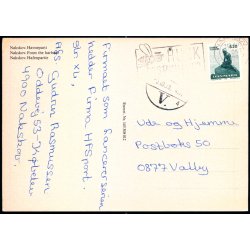 Nakskov Havneparti
Nakskov. From the harbour
Nakskov. Hafenpartie
Firmaet som fancerer sæson
hedder Firma HFSport.
str. XL,
Hfs Gudrun Rasmussen
Oddevej 53. Købelev
4900 Nakskov.
Ude og Hjemme
Postboks 50
0877 Valby